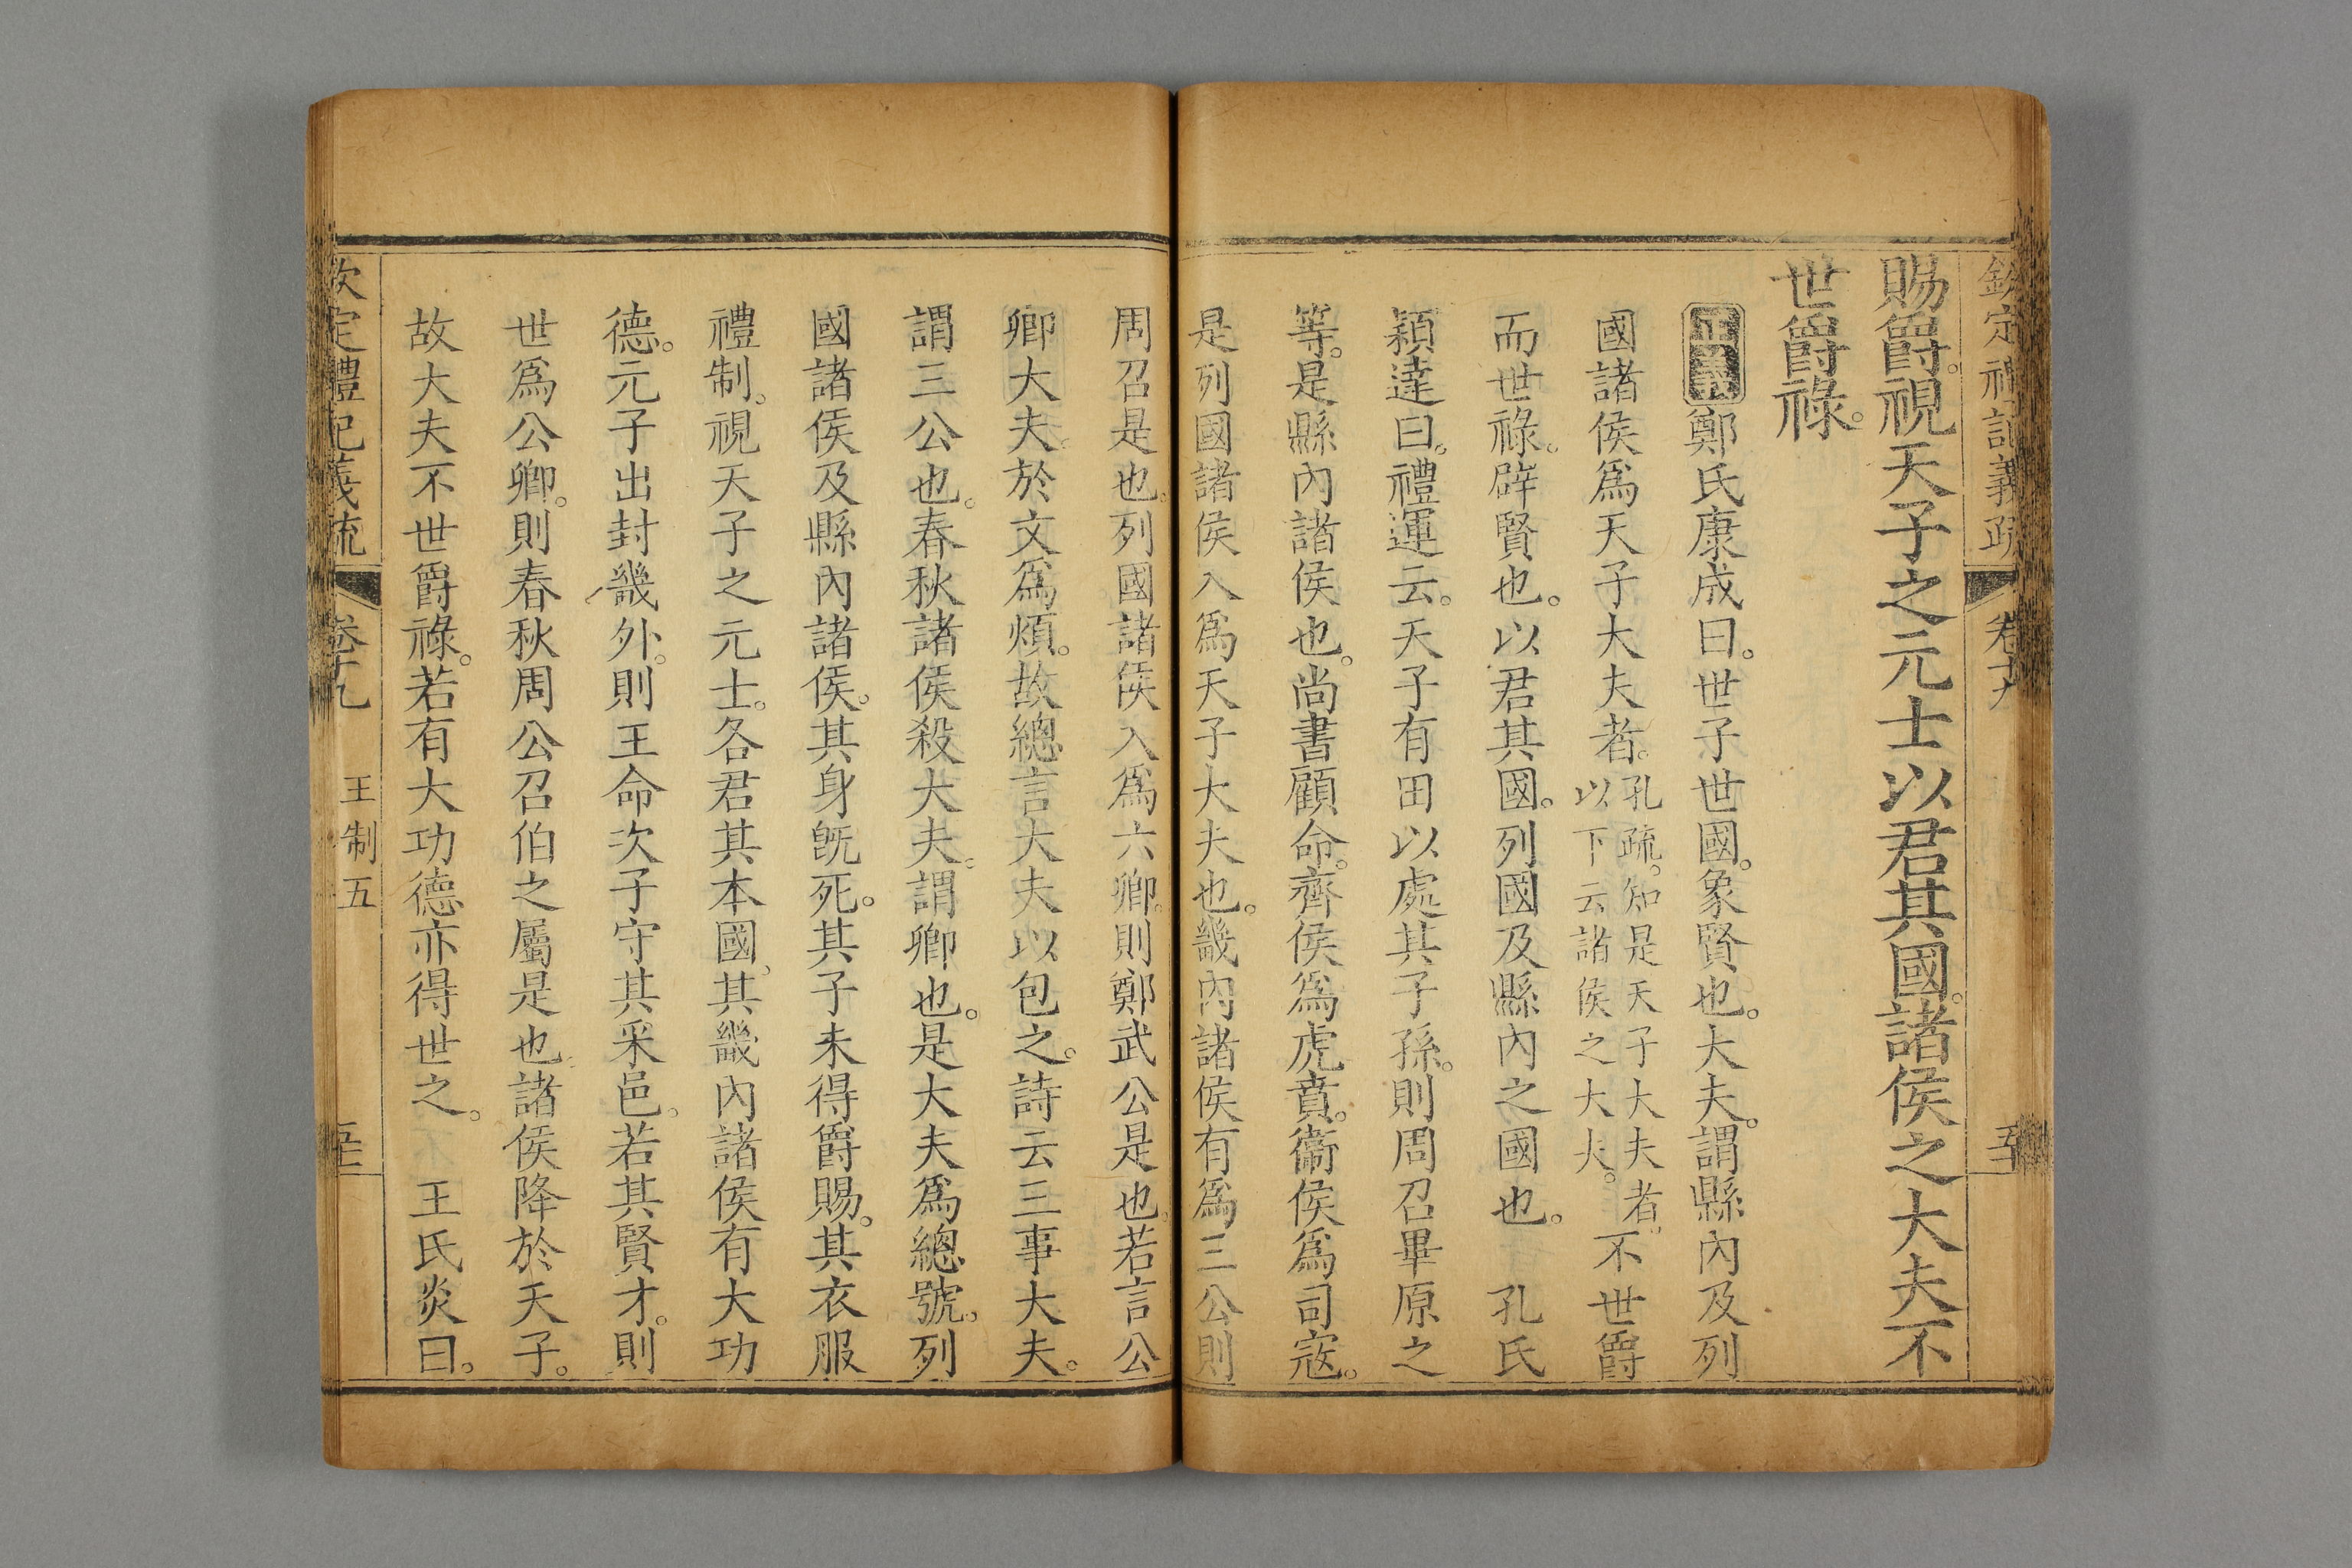 欽定禮記義疏 卷十九
賜爵。視天子之元士以君其國。諸侯之大夫不
世爵祿。
正義鄭氏康成曰。世子世國。象賢也。大夫。謂縣內及列
國諸侯爲天子大夫者。孔疏。知是天子大夫者。以下云諸侯之大夫。不世爵
而世祿。辟賢也。以君其國。列國及縣內之國也。 孔氏
穎達曰。禮運云。天子有田以處其子孫。則周召畢原之
等。是縣內諸侯也。尚書顧命。齊侯爲虎賁。衞侯爲司寇。
是列國諸侯入爲天子大夫也。畿內諸侯有爲三公則
周召是也。列國諸侯入爲六卿。則鄭武公是也。若言公
卿大夫。於文爲煩。故總言大夫以包之。詩云三事大夫。
謂三公也。春秋諸侯殺大夫。謂卿也。是大夫爲總號。列
國諸侯及縣內諸侯。其身旣死。其子未得爵賜。其衣服
禮制。視天子之元士。各君其本國。其畿內諸侯有大功
德。元子出封畿外。則王命次子守其采邑。若其賢才。則
世爲公卿。則春秋周公召伯之屬是也。諸侯降於天子。
故大夫不世爵祿。若有大功德亦得世之。 王氏炎曰。
欽定禮記義疏 卷十九 王制五